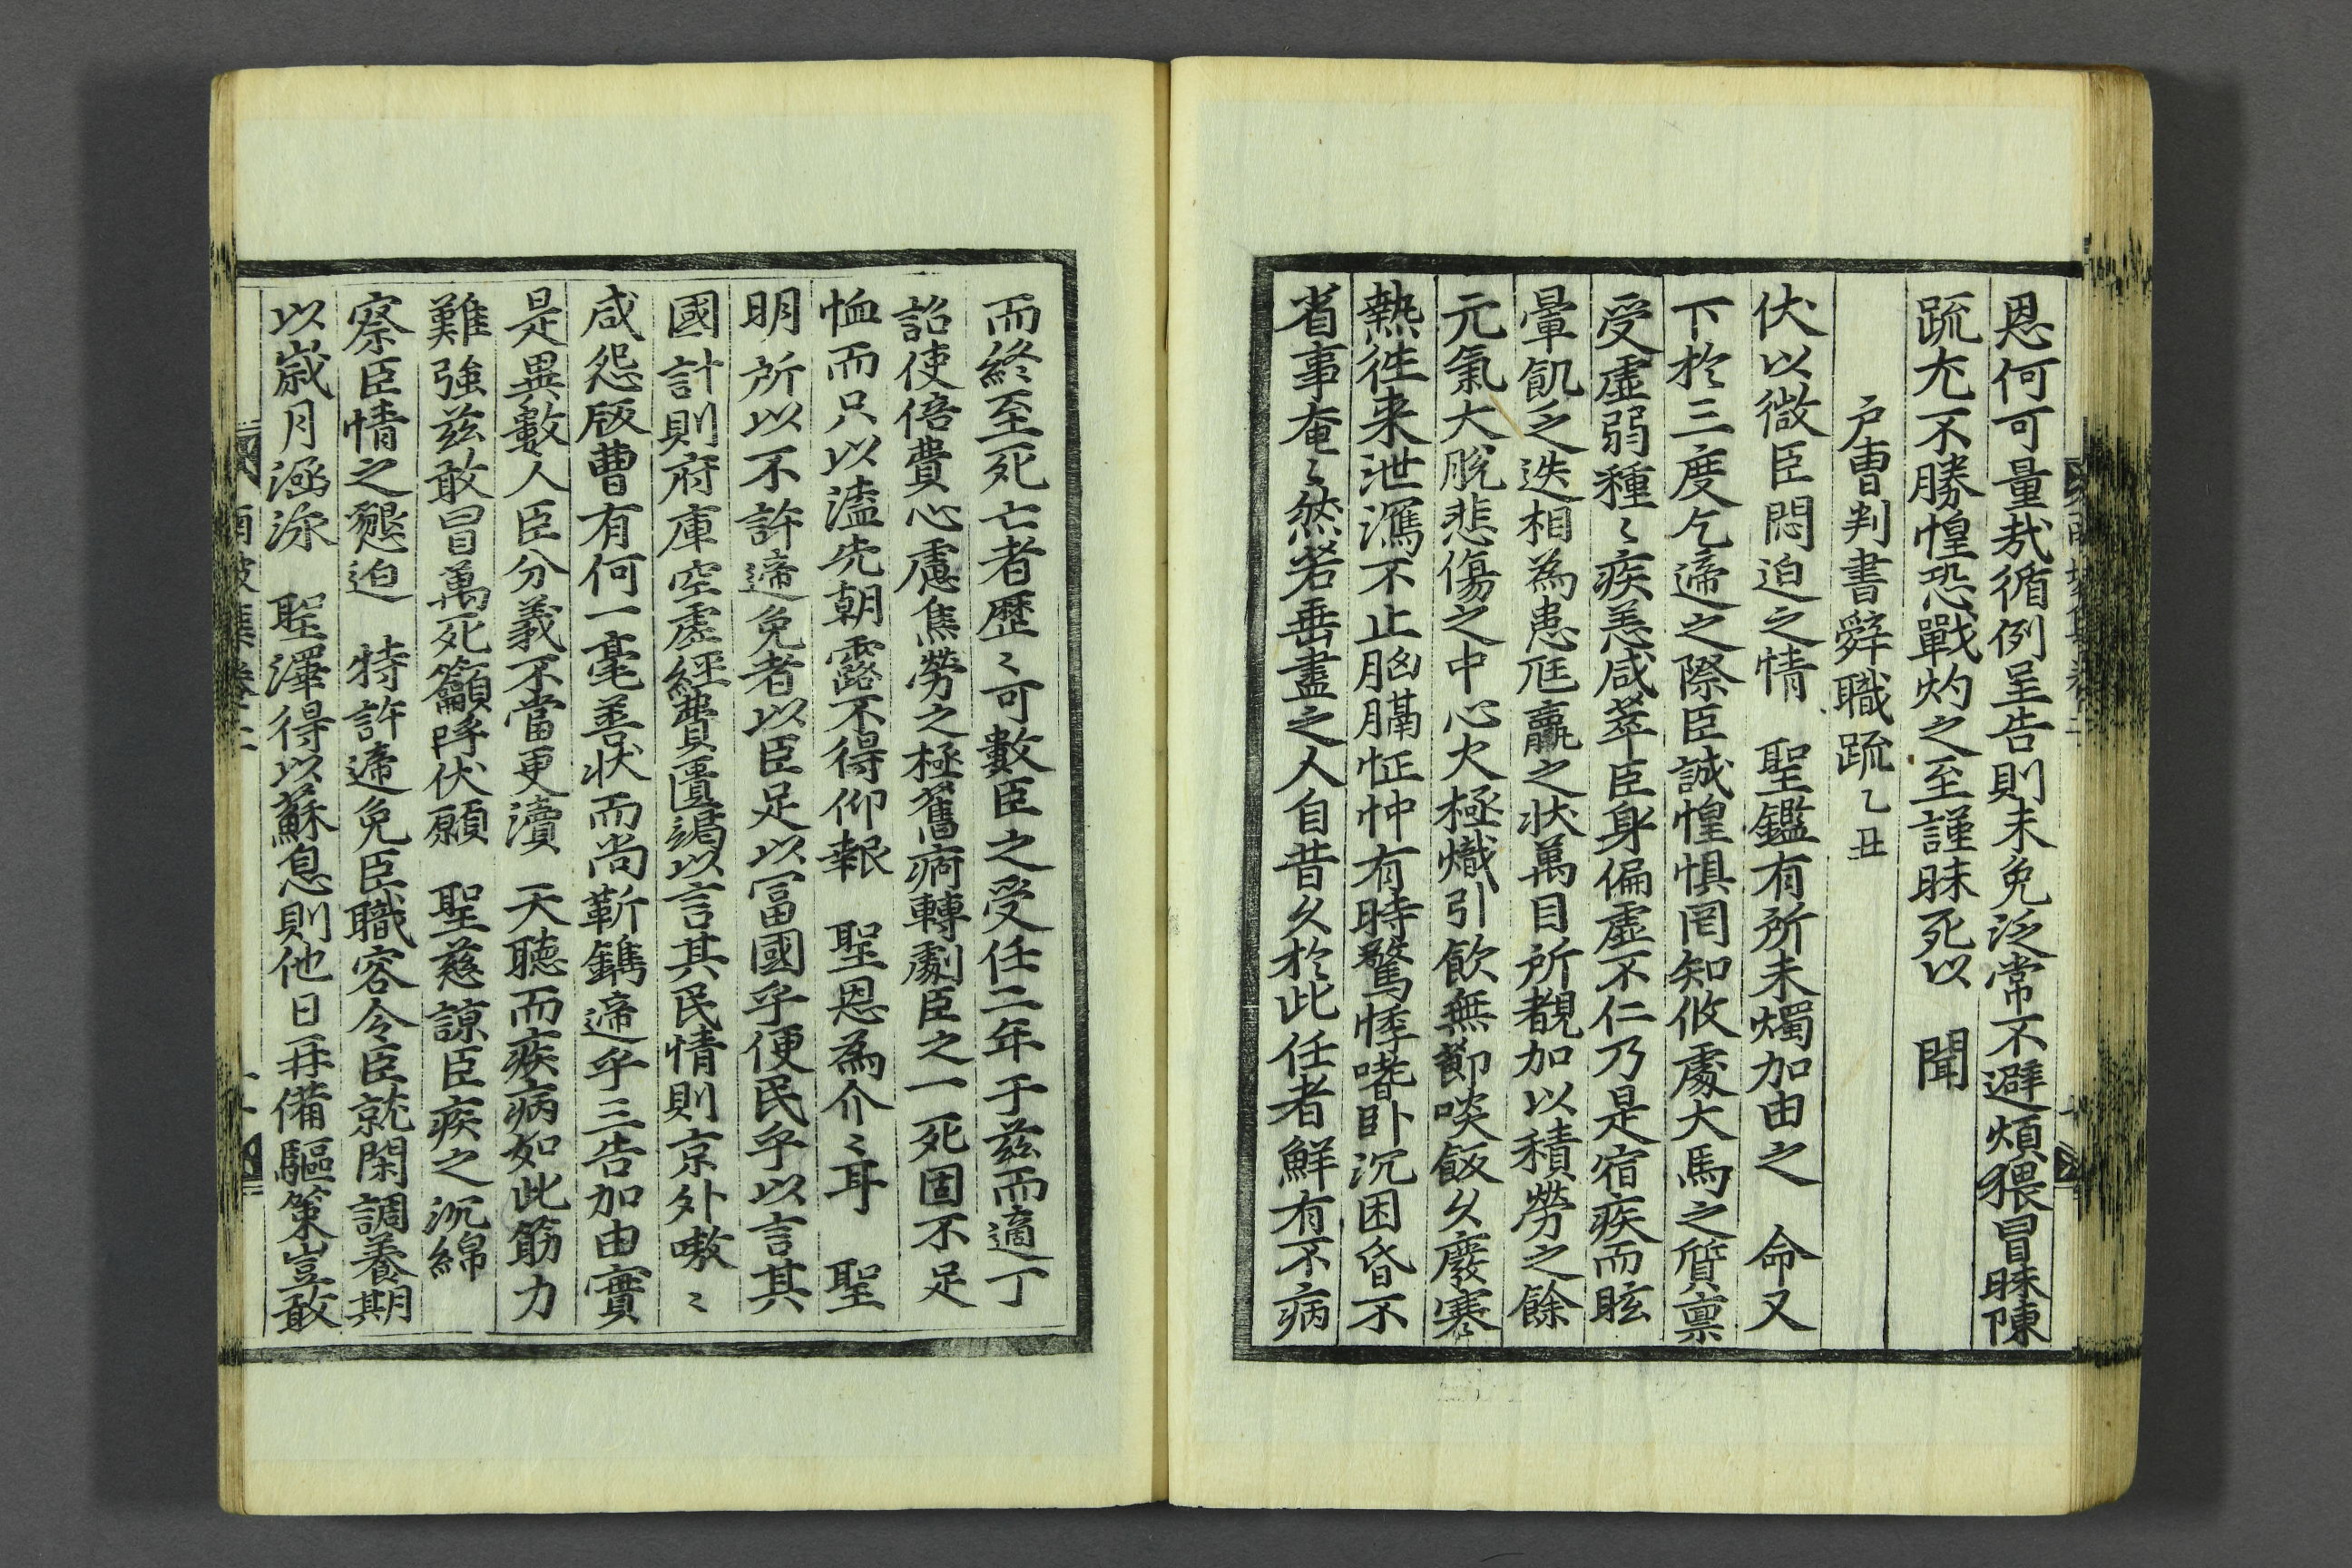 恩何可量哉循例呈告則未免泛常不避煩猥冒昧陳
疏尤不勝惶恐戰灼之至謹昧死以　聞
戶曹判書辭職疏乙丑
伏以微臣悶迫之情　聖鑑有所未燭加由之　命又
下於三度乞遞之際臣誠惶惧罔知攸處犬馬之質禀
受虛弱種〻疾恙咸萃臣身偏虛不仁乃是宿疾而眩
暈飢乏迭相為患尩羸之狀萬目所覩加以積勞之餘
元氣大脫悲傷之中心火極熾引飮無節啖飯久廢寒
熱徃来泄瀉不止胸膈怔忡有時驚悸嗜卧沉困昏不
省事奄〻然若垂盡之人自昔久於此任者鮮有不病
而終至死亡者歷〻可數臣之受任二年于玆而適丁
詔使倍費心慮焦勞之極舊痾轉劇臣之一死固不足
恤而只以溘先朝露不得仰報　聖恩為介〻耳　聖
明所以不許遞免者以臣足以冨國乎便民乎以言其
國計則府庫空虛經費匱竭以言其民情則京外嗷〻
咸怨版曹有何一毫善狀而尚靳鐫遞乎三告加由實
是異數人臣分義不當更瀆　天聽而疾病如此筋力
難強玆敢冒萬死籲呼伏願　聖慈諒臣疾之沉綿
察臣情之懇迫　特許遞免臣職容令臣就閑調養期
以歲月涵泳　聖澤得以蘇息則他日再備驅策豈敢